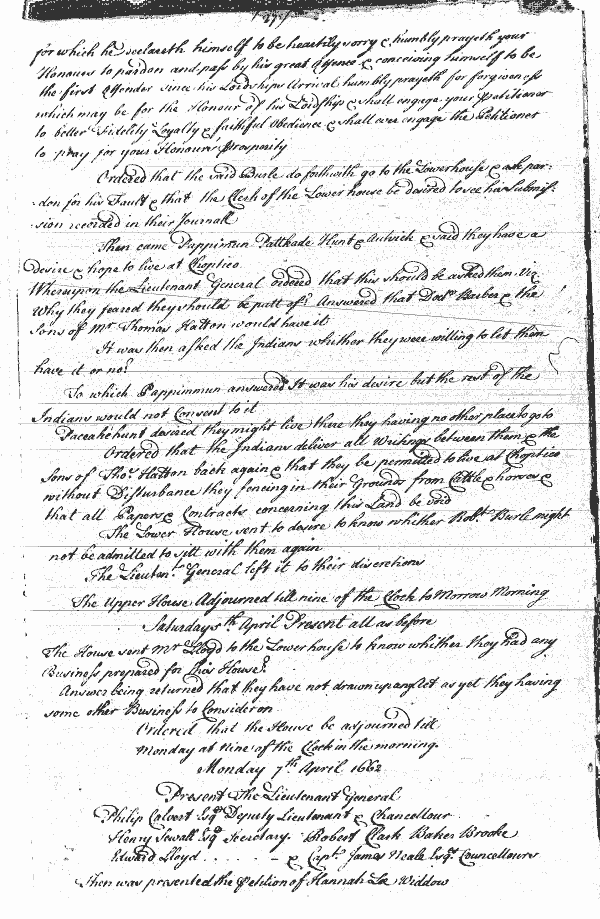 for which he declareth himself to be heartily sorry & humbly prayeth your
Honours to pardon and pass by his great offence & conceiving himself to be
the first offender since his Lordships Arrival humbly prayeth for forgiveness
which may be for the Honour of his Lordship & shall engage your Petitioner
to better Fidelity Loyalty & faithful Obedience & shall ever engage the Petitioner
to pray for your Honours Prosperity
Ordered that the said Burle do forthwith go to the Lowerhouse & ask par:
:don for his Fault & that the Clerk of the Lower house be desired to see his Submis:
:sion recorded in their Journall
Then came Pappimun Pattkade Hunt & said they have a
desire & hope to live at Choptico
Whereupon the Lieutenant General ordered that this should be asked them Viz
Why they feared they should be putt of? Answered that Doctr Barber & the
Sons of Mr Thomas Hatton would have it
It was then asked the Indians whether they were willing to let them
have it or no?
To which Pappimmun answered It was his desire but the rest of the
Indians would not Consent to it
Paceahehunt desired they might live there they having no other place to go to
Ordered that the Indians deliver all Writings between them & the
Sons of Thos Hatton back again & that they be permitted to live at Choptico
without Disturbance they fencing in their Grounds from Cattle & horses &
that all Papers & Contracts concerning this Land be void
The Lower House sent to desire to know whether Robt Burle might
not be admitted to sitt with them again
The Lieutent General left it to their discretions
The Upper House Adjourned till nine of the Clock to Morrow Morning
Saturday 5th April Present all as before
The House sent Mr Lloyd to the Lower house to know whether they had any
Business prepared for this House?
Answer being returned that they have not drawn up any Act as yet they having
some other Business to Consider on
Ordered That the House be adjourned till
Monday at Nine of the Clock in the morning.
Monday 7th April 1662
Present The Lieutenant General
Philip Calvert Esqr Deputy Lieutenant & Chancellour
Henry Sewall Esqr Secretary. Robert Clark Baker Brooke
Edward Lloyd . . . . . . & Capt James Neale Esqr Councellours
Then was presented the Petition of Hannah Lee Widdow